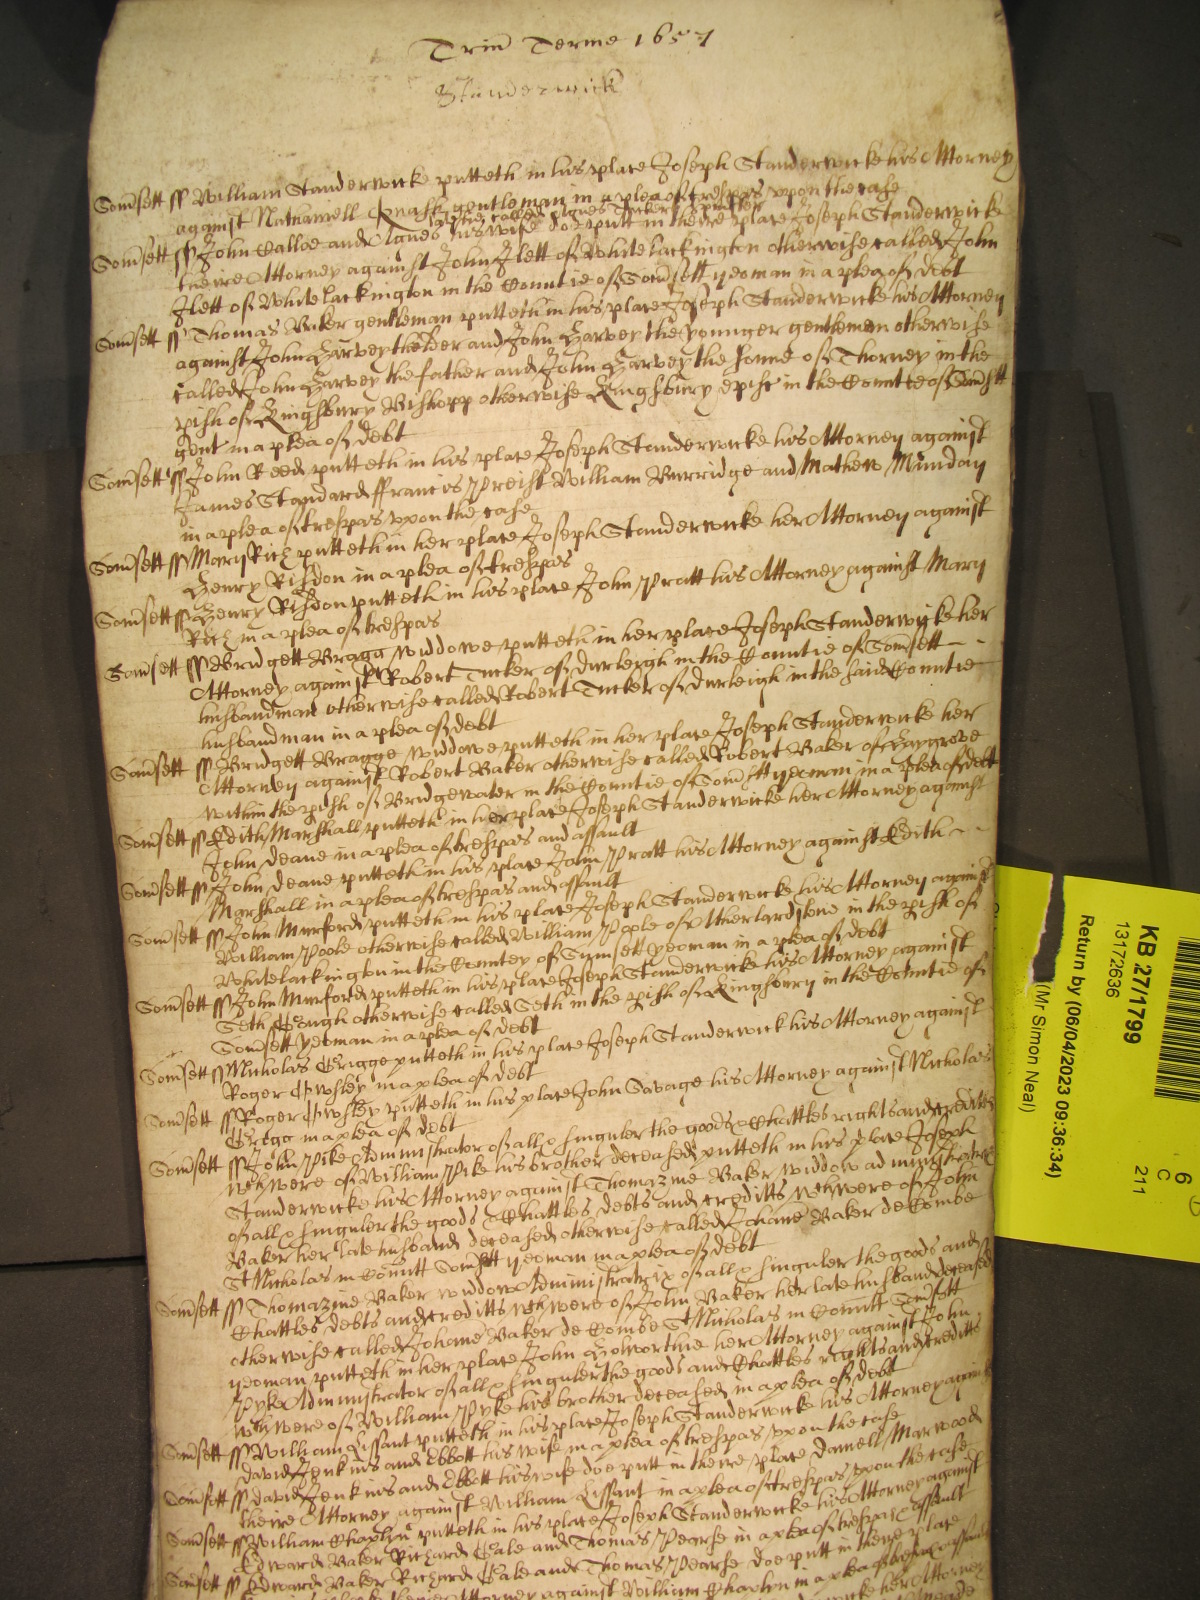 Trin Terme 1657
Standerwick
Somsett ss William Standerwicke putteth in his place Joseph Standerwicke his Attorney
against Nathaniell gentleman in a plea of trespas upon the case
late called Agnes Tucker
Somsett ss John and Agnes his wife doe putt in theire place Joseph Standerwicke
theire Attorney against John Flett of Whitelackington otherwise called John
Flett of Whitelackington in the Countie of Somsett yeoman in a plea of debt
Somsett ss Thomas Baker gentleman putteth in his place Joseph Standerwicke his Attorney
against John Harvey thelder and John Harvey the younger gentlemen otherwise
called John Harvey the father and John Harvey the sonne of Thorney in the
pish of Kingsbury Bishopp otherwise Kingsbury Epise in the Countie of Somsett
gent in a plea of debt
Somsett ss John Reed putteth in his place Joseph Standerwicke his Attorney against
James Standard ffrancis Preist William Burridge and Mathew Munday
in a plea of trespas upon the case
Somsett ss Mary Rich putteth in her place Joseph Standerwicke her Attorney against
Henry Risdon in a plea of trespas
Somsett ss Henry Risdon putteth in his place John Pratt his Attorney against Mary
Rich in a plea of trespas
Somsett ss Bridgett Bragg widdowe putteth in her place Joseph Standerwyke her
Attorney against Robert Tucker of Durleigh in the Countie of Somsett
husbandman otherwise called Robert Tucker of Durleigh in the said Countie
husbandman in a plea of debt
Somsett ss Bridgett Bragge widdowe putteth in her place Joseph Standerwicke her
Attorney against Robert Baker otherwise called Robert Baker of Haygrove
within the pish of Bridgewater in the Countie of Somsett yeoman in a plea of debt
Somsett ss Edith Marshall putteth in her place Joseph Standerwicke her Attorney against
John Deane in a plea of trespas and assault
Somsett ss John Deane putteth in his place John Pratt his Attorney against Edith
Marshall in a plea of trespas and assault
Somsett ss John Murford putteth in his place Joseph Standerwicke his Attorney against
William Poole otherwise called William Poole of in the pish of
Whitelackington in the Countey of Symsett yeoman in a plea of debt
Somsett ss John Murford putteth in his place Joseph Standerwicke his Attorney against
Seth Gough otherwise called Seth in the pish of Kingsbury in the Countie of
Somsett yeoman in a plea of debt
Somsett ss Nicholas Grigge putteth in his place Joseph Standerwick his Attorney against
Roger in a plea of debt
Somsett ss Roger putteth in his place John Savage his Attorney against Nicholas
Grigg in a plea of debt
Somsett ss John Pike Administrator of all & singuler the goods & Chattles rights and creditts
wch were of William Pike his brother deceased putteth in his place Joseph
Standerwicke his Attorney against Thomazine Baker widdow administratrix
of all & singuler the goods & Chattles debts and creditts wch were of John
Baker her late husband deceased otherwise called Johane Baker de Combe
St Nicholas in Comitt Somsett yeoman in a plea of debt
Somsett ss Thomazine Baker widdow Administratrix of all & singuler the goods and
Chattles debts and creditts wch were of John Baker her late husband deceased
otherwise called Johane Baker de Combe St Nicholas in Comitt Somsett
yeoman putteth in her place John Holworthie her Attorney against John
Pyke Administrator of all & singuler the goods and Chattles rights and creditts
wch were of William Pyke his brother deceased in a plea of debt
Somsett ss William Lissant putteth in his place Joseph Standerwicke his Attorney against
David Jenkins and Ebbott his wife in a plea of trespas upon the case
Somsett ss David Jenkins and Ebbott his wife doe putt in theire place Daniell Marwood
theire Attorney against William Lissant in a plea of trespas upon the case
Somsett ss William Chaplyn putteth in his place Joseph Standerwicke his Attorney against
Edward Baker Richard Gale and Thomas Pearse in a plea of trespas & assault
Somsett ss Edward Baker Richard Gale and Thomas Pearse doe putt in theire place
theire Attorney against William Chaplyn in a plea of trespas
her Attorney
KB 27/1799
13172636
Return by (06/04/2023 09:36:34)
(Mr Simon Neal)
6
C
211